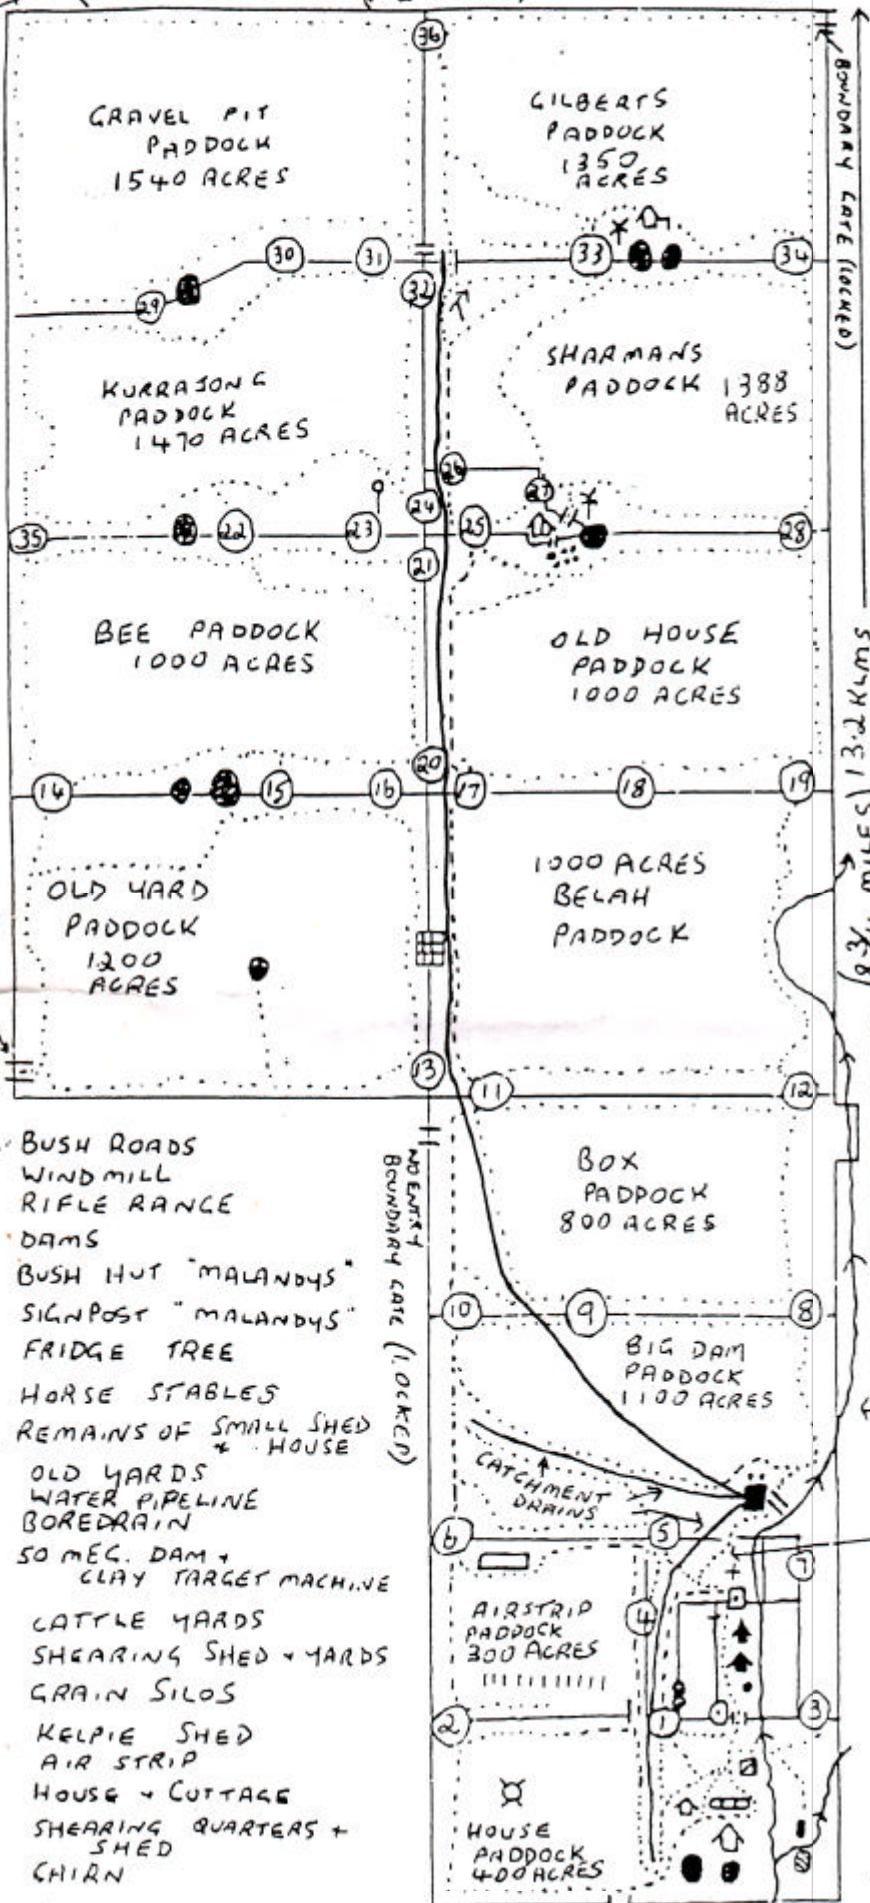 36
GRAVEL PIT
PADDOCK
1540 ACRES
GILBERTS
PADDOCK
1350
ACRES
BOUNDARY GATE (LOCKED)
29
30
31
32
33
34
KURRAJONG
PADDOCK
1470 ACRES
SHARMANS
PADDOCK 1388
ACRES
26
27
24
35
22
23
25
28
21
BEE PADDOCK
1000 ACRES
OLD HOUSE
PADDOCK
1000 ACRES
MILES) 13.2 KLMS
20
14
15
16
17
18
19
OLD YARD
PADDOCK
1200
ACRES
1000 ACRES
BELAH
PADDOCK
13
11
12
BUSH ROADS
WINDMILL
RIFLE RANGE
DAMS
BUSH HUT "MALANDYS"
SIGNPOST "MALANDYS"
FRIDGE TREE
HORSE STABLES
REMAINS OF SMALL SHED
+ HOUSE
OLD YARDS
WATER PIPELINE
BOREDRAIN
50 MEG. DAM +
CLAY TARGET MACHINE
CATTLE YARDS
SHEARING SHED + YARDS
GRAIN SILOS
KELPIE SHED
AIR STRIP
HOUSE + COTTAGE
SHEARING QUARTERS +
SHED
NO ENTRY
BOUNDARY GATE (LOCKED)
BOX
PADDOCK
800 ACRES
10
9
8
BIG DAM
PADDOCK
1100 ACRES
CATCHMENT
DRAINS
6
5
7
AIRSTRIP
PADDOCK
300 ACRES
4
2
1
3
HOUSE
PADDOCK
400 ACRES